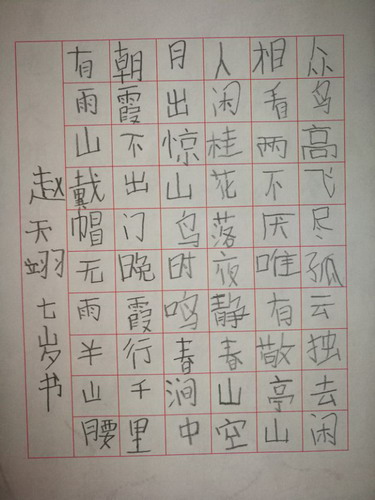 众鸟高飞尽孤云独去闲
相看两不厌唯有敬亭山
人闲桂花落夜静春山空
月出惊山鸟时鸣春涧中
朝霞不出门晚霞行千里
有雨山戴帽无雨半山腰
赵天翊七岁书